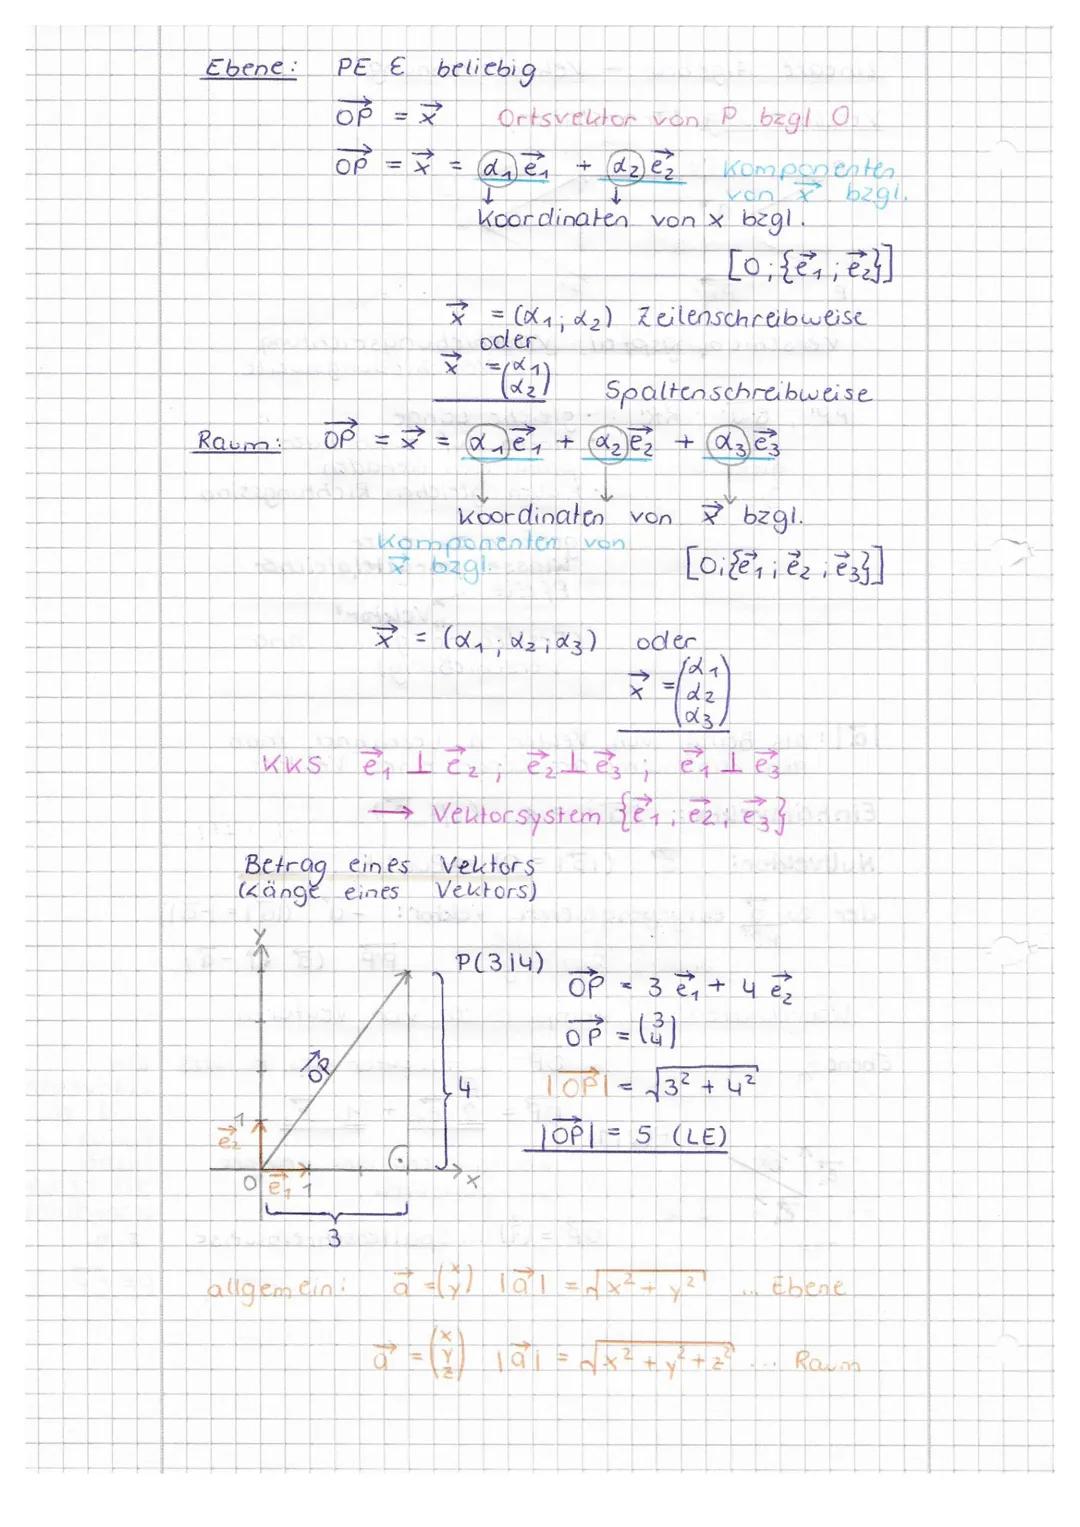 Ebene: PE ε beliebig
→OP = →x Ortsvektor von P bzgl O
→OP = →x = α₁ →e₁ + α₂ →e₂ Komponenten
von →x bzgl.
Koordinaten von x bzgl.
[O;{→e₁; →e₂}]
→x = (α₁; α₂) Zeilenschreibweise
oder
→x = (α₁
α₂) Spaltenschreibweise
Raum: →OP = →x = α₁ →e₁ + α₂ →e₂ + α₃ →e₃
Koordinaten von →x bzgl.
Komponenten von
→x bzgl.
[O;{→e₁; →e₂; →e₃}]
→x = (α₁; α₂; α₃) oder
→x = (α₁
α₂
α₃)
KKS →e₁ ⊥ →e₂; →e₂ ⊥ →e₃; →e₁ ⊥ →e₃
→ Vektorsystem {→e₁; →e₂; →e₃}
Betrag eines Vektors
(Länge eines Vektors)
y
P(3|4)
→OP = 3 →e₁ + 4 →e₂
→OP = (3
4)
→OP
4
|→OP| = √3² + 4²
|→OP| = 5 (LE)
1
→e₂
0 →e₁ 1
x
3
allgemein: →a = (x
y) |→a| = √x² + y² ... Ebene
→a = (x
y
z) |→a| = √x² + y² + z² ... Raum